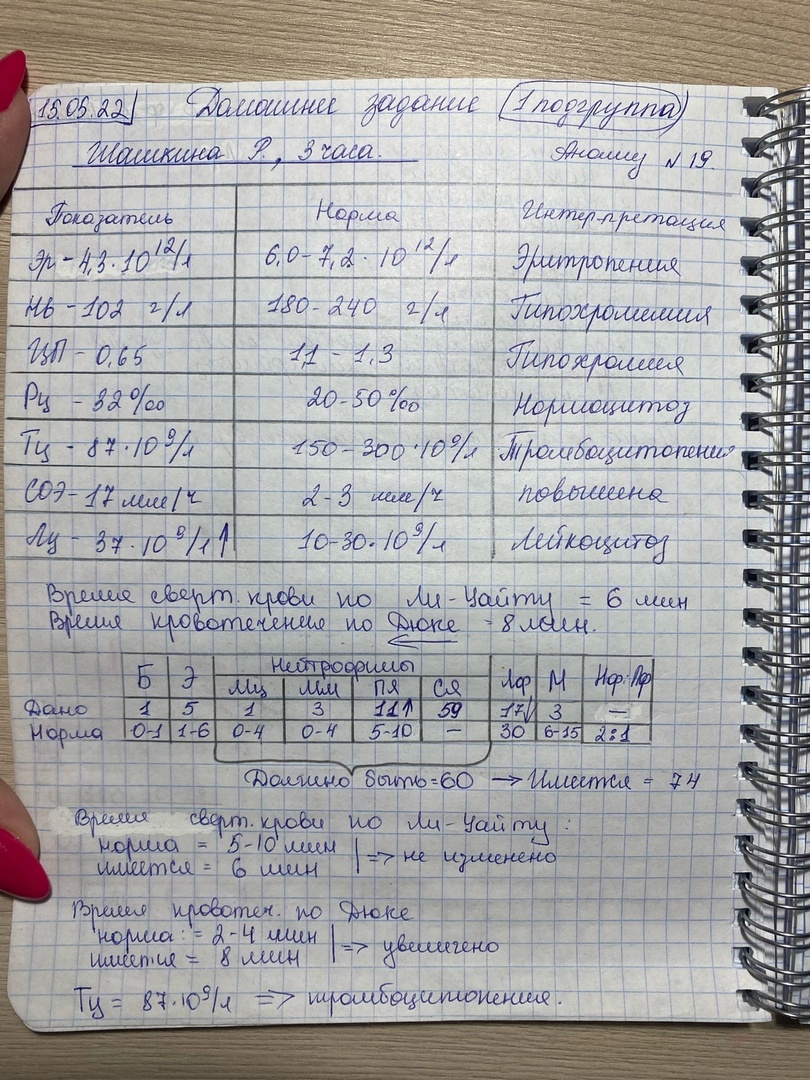 15.05.22 Домашнее задание (1 подгруппа)
Шашкина Р., 3 часа. Анализ N 19.
Показатель Норма Интерпретация
Эр - 4,3·10¹²/л 6,0-7,2·10¹²/л Эритропения
Hb - 102 г/л 180-240 г/л Гипохромемия
ЦП - 0,65 1,1 - 1,3 Гипохромия
Рц - 32‰ 20-50‰ Нормоцитоз
Тц - 87·10⁹/л 150-300·10⁹/л Тромбоцитопения
СОЭ - 17 мм/ч 2-3 мм/ч повышена
Лц - 37·10⁹/л↑ 10-30·10⁹/л Лейкоцитоз
Время сверт. крови по Ли-Уайту = 6 мин
Время кровотечения по Дюке - 8 мин.
Б Э Нейтрофилы Лф М Нф:Лф
Мц Мм ПЯ СЯ
Дано 1 5 1 3 11↑ 59 17↓ 3 —
Норма 0-1 1-6 0-4 0-4 5-10 — 30 6-15 2:1
Должно быть = 60 → Имеется = 74
Время сверт. крови по Ли-Уайту:
норма = 5-10 мин
имеется = 6 мин => не изменено
Время кровотеч. по Дюке
норма: = 2-4 мин
имеется = 8 мин => увеличено
Тц = 87·10⁹/л => тромбоцитопения.